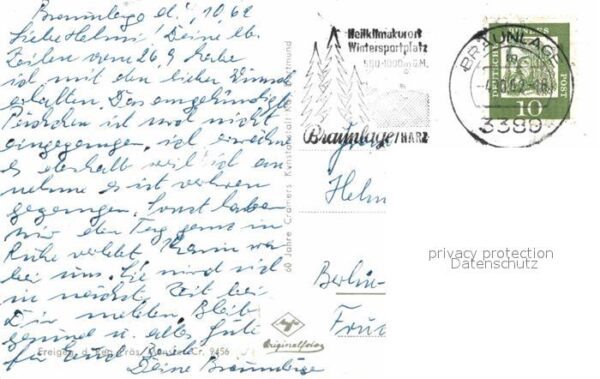 Braunlage d. , 10.62
Liebe Helmi! Deine lb.
Zeilen vom 26.9 habe
ich mit den lieben
erhalten. Das angekündigte
Päckchen ist noch nicht
eingegangen, ich erwähne
es deshalb weil ich an
nehme es ist verloren
gegangen. Sonst haben
wir den Tag ganz in
Ruhe verlebt. Karin war
bei uns. Sie wird sich
in nächster Zeit bei
Dir melden. Bleib
gesund u. alles Gute
für
Deine Braunlager
Heilklimakurort
Wintersportplatz
550-1000m ü.M.
Braunlage/HARZ
BRAUNLAGE
3389
POST
10
Helm
Berlin-
60 Jahre Cramers Kunstanstalt KG Dortmund
Freigeg. d. Reg. Präs. Münster Nr. 9456
Originalfoto
privacy protection
Datenschutz